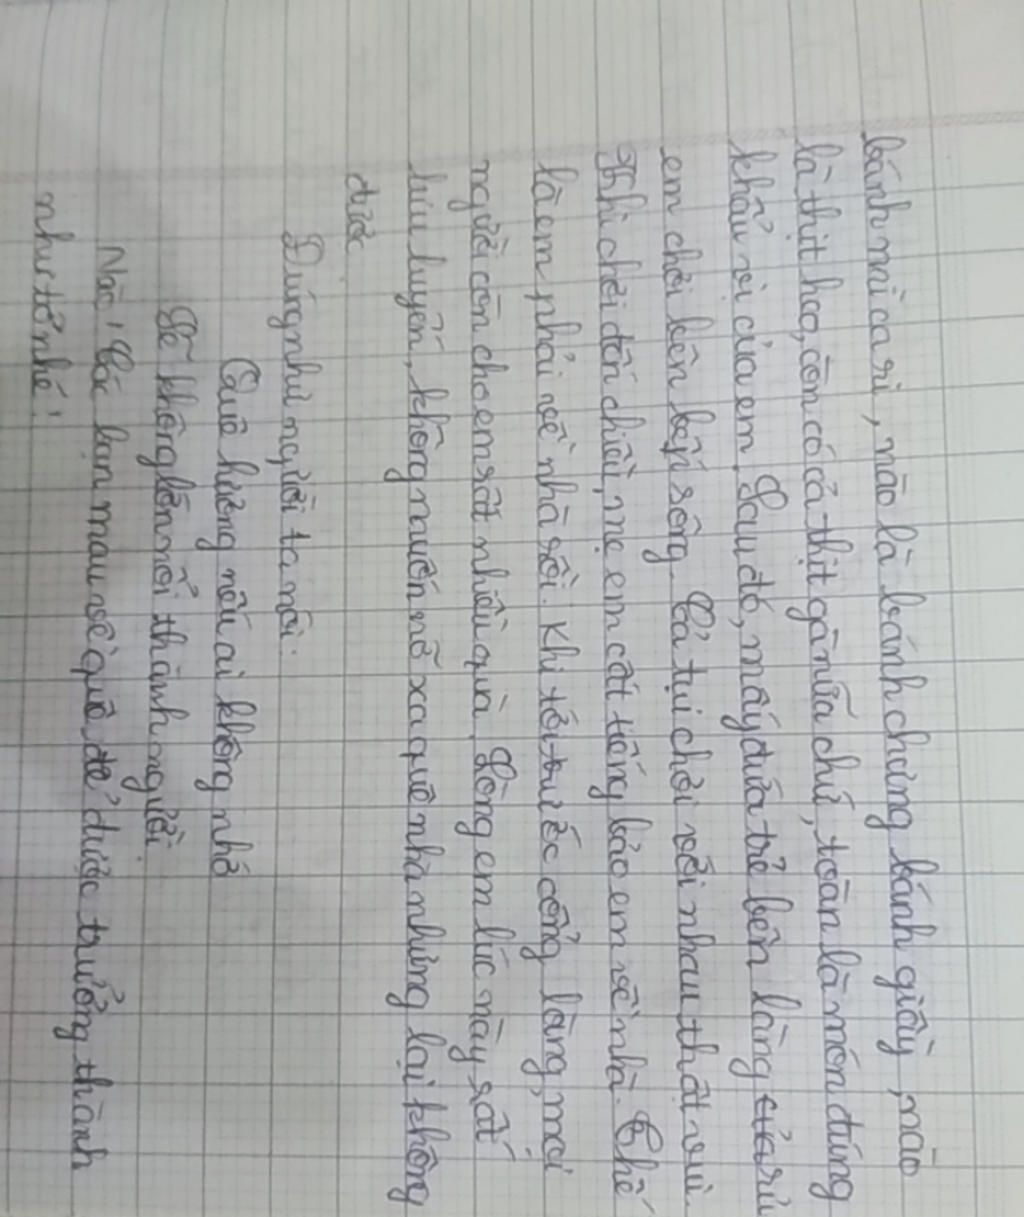 bánh mì cari, nào là bánh chưng bánh giầy, nào
là thịt heo, còn có cả thịt gà nữa chứ, toàn là món đúng
khẩu vị của em. Sau đó, mấy đứa trẻ bên làng rủ
em chơi bên bếp sông. Cả tụi chơi với nhau thật vui.
Thì chơi đến chiều, mẹ em cất tiếng bảo em về nhà. Thế
là em phải về nhà rồi. Khi tới trước cổng làng, mọi
người còn cho em rất nhiều quà. Lòng em lúc này rất
lưu luyến, không muốn nỡ xa quê nhà nhưng lại không
được.
Đúng như người ta nói:
Quê hương nếu ai không nhớ
Sẽ không lớn nổi thành người.
Nào! Các bạn mau về quê để được trưởng thành
như tớ nhé!